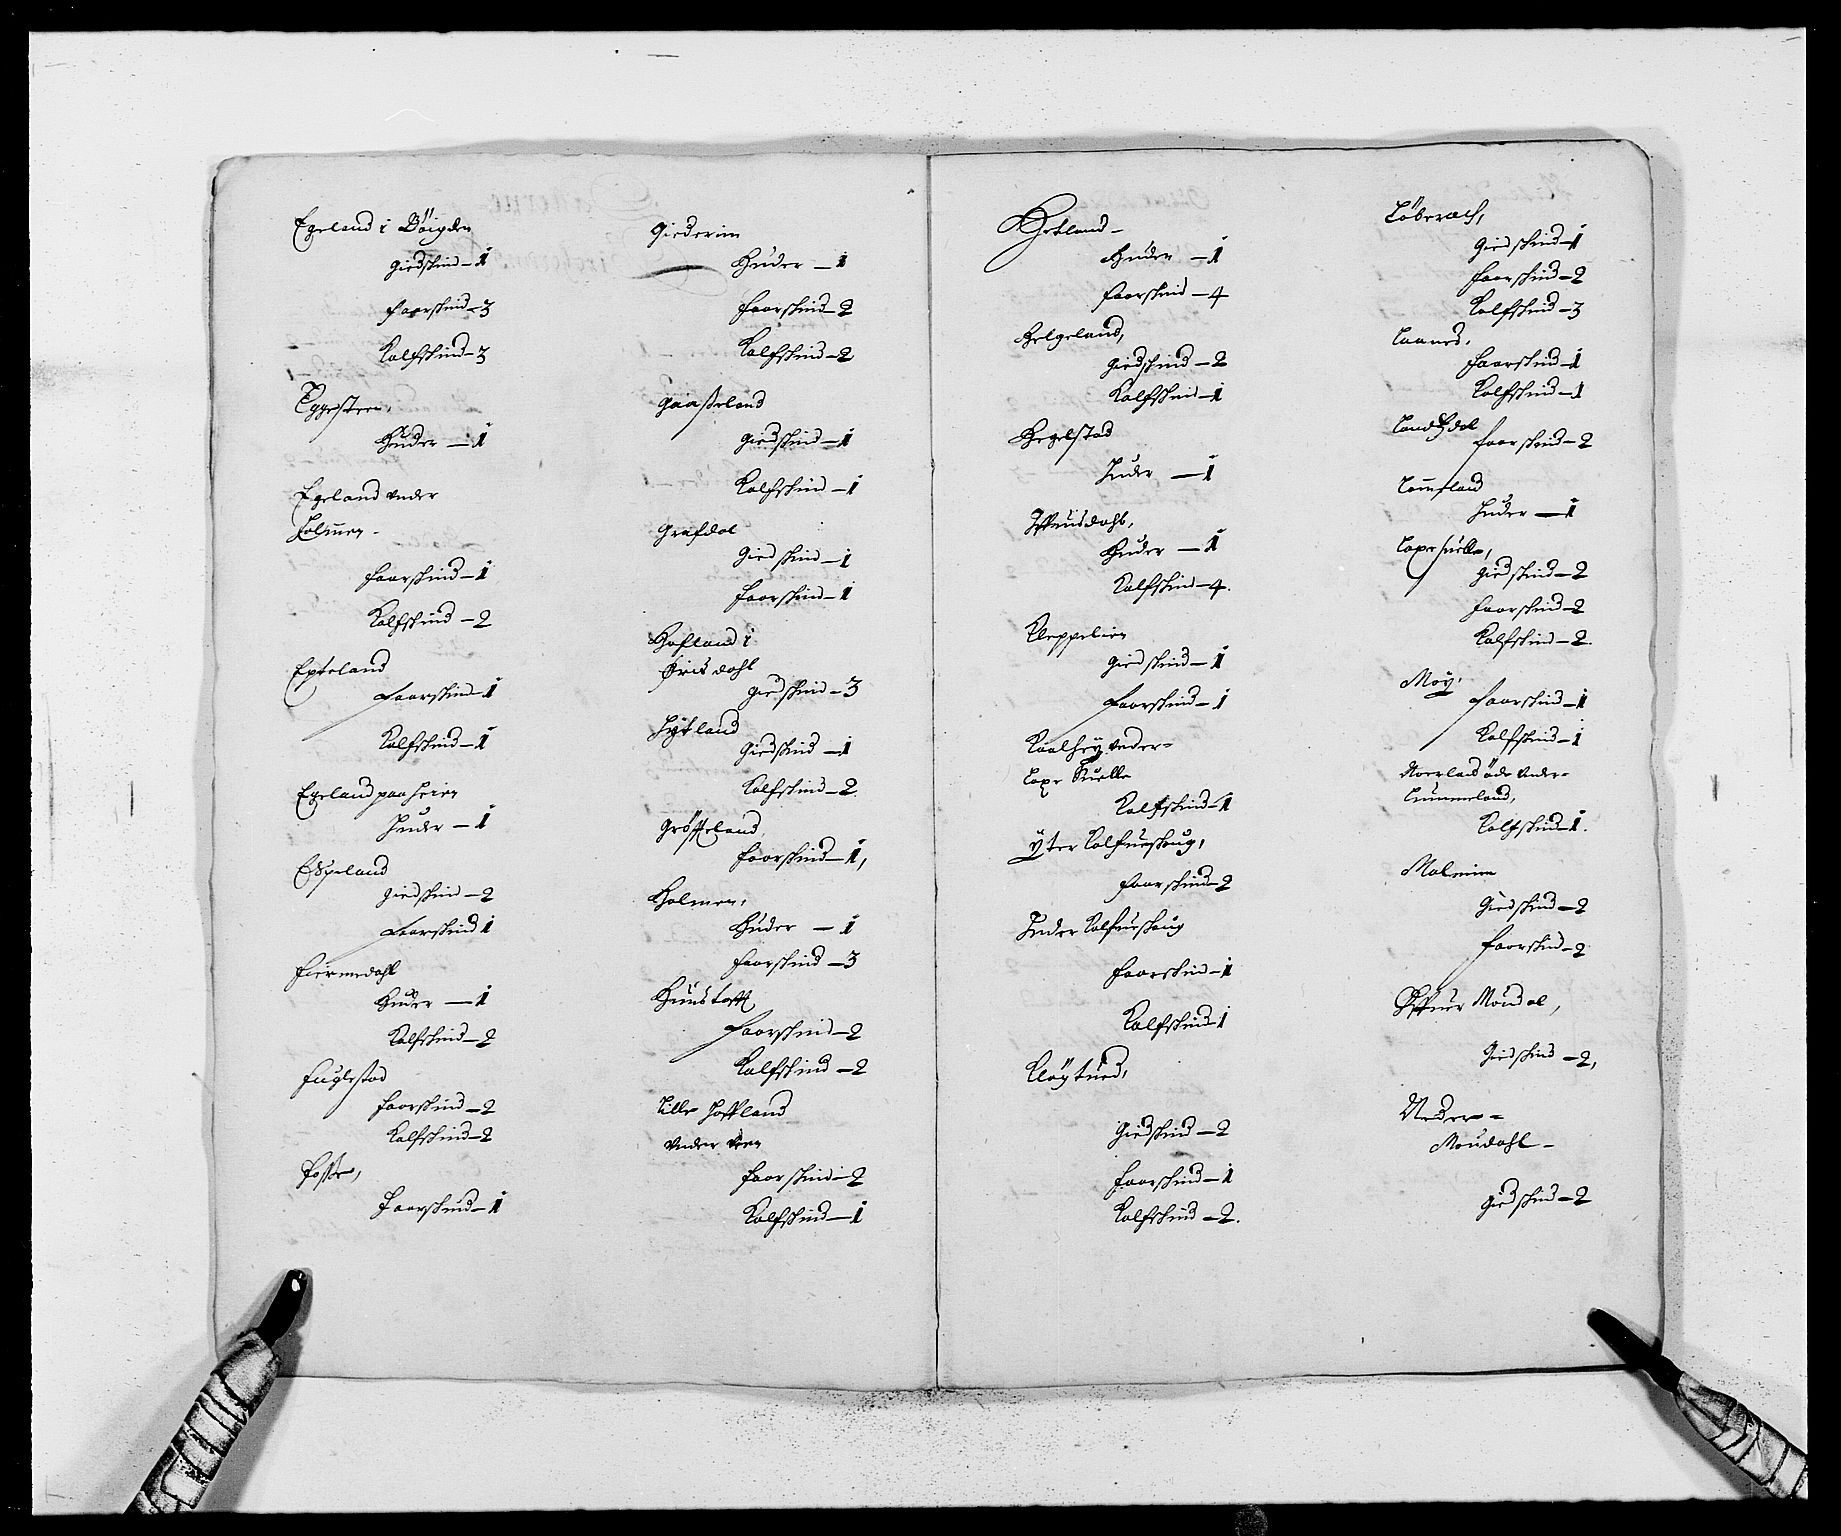 Egeland i Böigden
Giedskind – 1
Faarskind – 3
Kalfskind – 3
Eggesteen,
Huder – 1
Egeland under
Holmen –
Faarskind – 1
Kalfskind – 2
Epteland
Faarskind – 1
Kalfskind – 1
Egeland paa heien
Huder – 1
Espeland
Giedskind – 2
Faarskind 1
Fiermedahl
Huder – 1
Kalfskind – 2
Fuglestad
Faarskind – 2
Kalfskind – 2
Fosse,
Faarskind – 1
Gierim
Huder – 1
Faarskind – 2
Kalfskind – 2
Gaaseland
Giedskind – 1
Kalfskind – 1
Grafdal
Giedskind – 1
Faarskind – 1
Hafland i
Örisdahl
Giedskind – 3
Hytland
Giedskind – 1
Kalfskind – 2
Grösseland
Faarskind – 1,
Holmen,
Huder – 1
Faarskind – 3
Huustofft
Faarskind – 2
Kalfskind – 2
Lille Hoffland
under
Faarskind – 2
Kalfskind – 1
Hetland –
Huder – 1
Faarskind – 4
Helgeland,
Giedskind – 2
Kalfskind – 1
Hegelstad
Huder – 1
Huder – 1
Kalfskind – 4.
Kleppelien
Giedskind – 1
Faarskind – 1
Kaalhey under =
Laxe Quelle
Kalfskind – 1
Yter Kalfueskaug,
Faarskind – 2
Inder Kalfueskaug
Faarskind – 1
Kalfskind 1
Kløytued,
Giedskind – 2
Faarskind – 1
Kalfskind – 2.
Giedskind – 1
Faarskind – 2
Kalfskind – 3
Laaned,
Faarskind – 1
Kalfskind – 1
Landsdal
Faarskind – 2
Lomsland
Huder – 1
Laxesuelle,
Giedskind – 2
Faarskind – 2
Kalfskind – 2.
Moy,
Faarskind – 1
Kalfskind – 1
öde under =
Tummeland,
Kalfskind – 1.
Malmim
Giedskind – 2
Faarskind – 2
Offuer Moudal,
Giedskind – 2,
Neder =
Moudahl –
Giedskind – 2